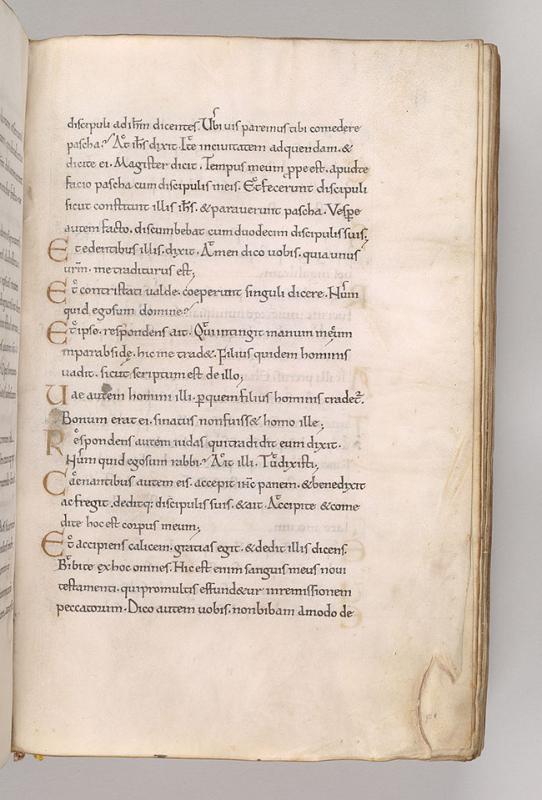 discipuli ad ihm dicentes. Ubi vis paremus tibi comedere
pascha? At ihs dixit. Ite in civitatem ad quendam. &
dicite ei. Magister dicit. Tempus meum ppe est. apud te
facio pascha cum discipulis meis. Et fecerunt discipuli
sicut constituit illis ihs. & paraverunt pascha. Vespe
autem facto. discumbebat cum duodecim discipulis suis;
Et edentibus illis. dixit. Amen dico vobis. quia unus
urm. me traditurus est;
Et contristati valde. coeperunt singuli dicere. Num
quid ego sum domine?
Et ipse. respondens ait. Qui intingit manum mecum
in parabside. hic me trad&. Filius quidem hominis
vadit. sicut scriptum est de illo;
Uae autem homini illi. p quem filius hominis tradet.
Bonum erat ei. si natus non fuiss& homo ille;
Respondens autem iudas qui tradidit eum dixit.
Num quid ego sum rabbi? Ait illi. Tu dixisti;
Caenantibus autem eis. accepit ihc panem. & benedixit
ac fregit. deditq; discipulis suis. & ait. Accipite & come
dite hoc est corpus meum;
Et accipiens calicem. gratias egit. & dedit illis dicens.
Bibite ex hoc omnes. Hic est enim sanguis meus novi
testamenti. qui pro multis effund&ur in remissionem
peccatorum. Dico autem vobis. non bibam amodo de